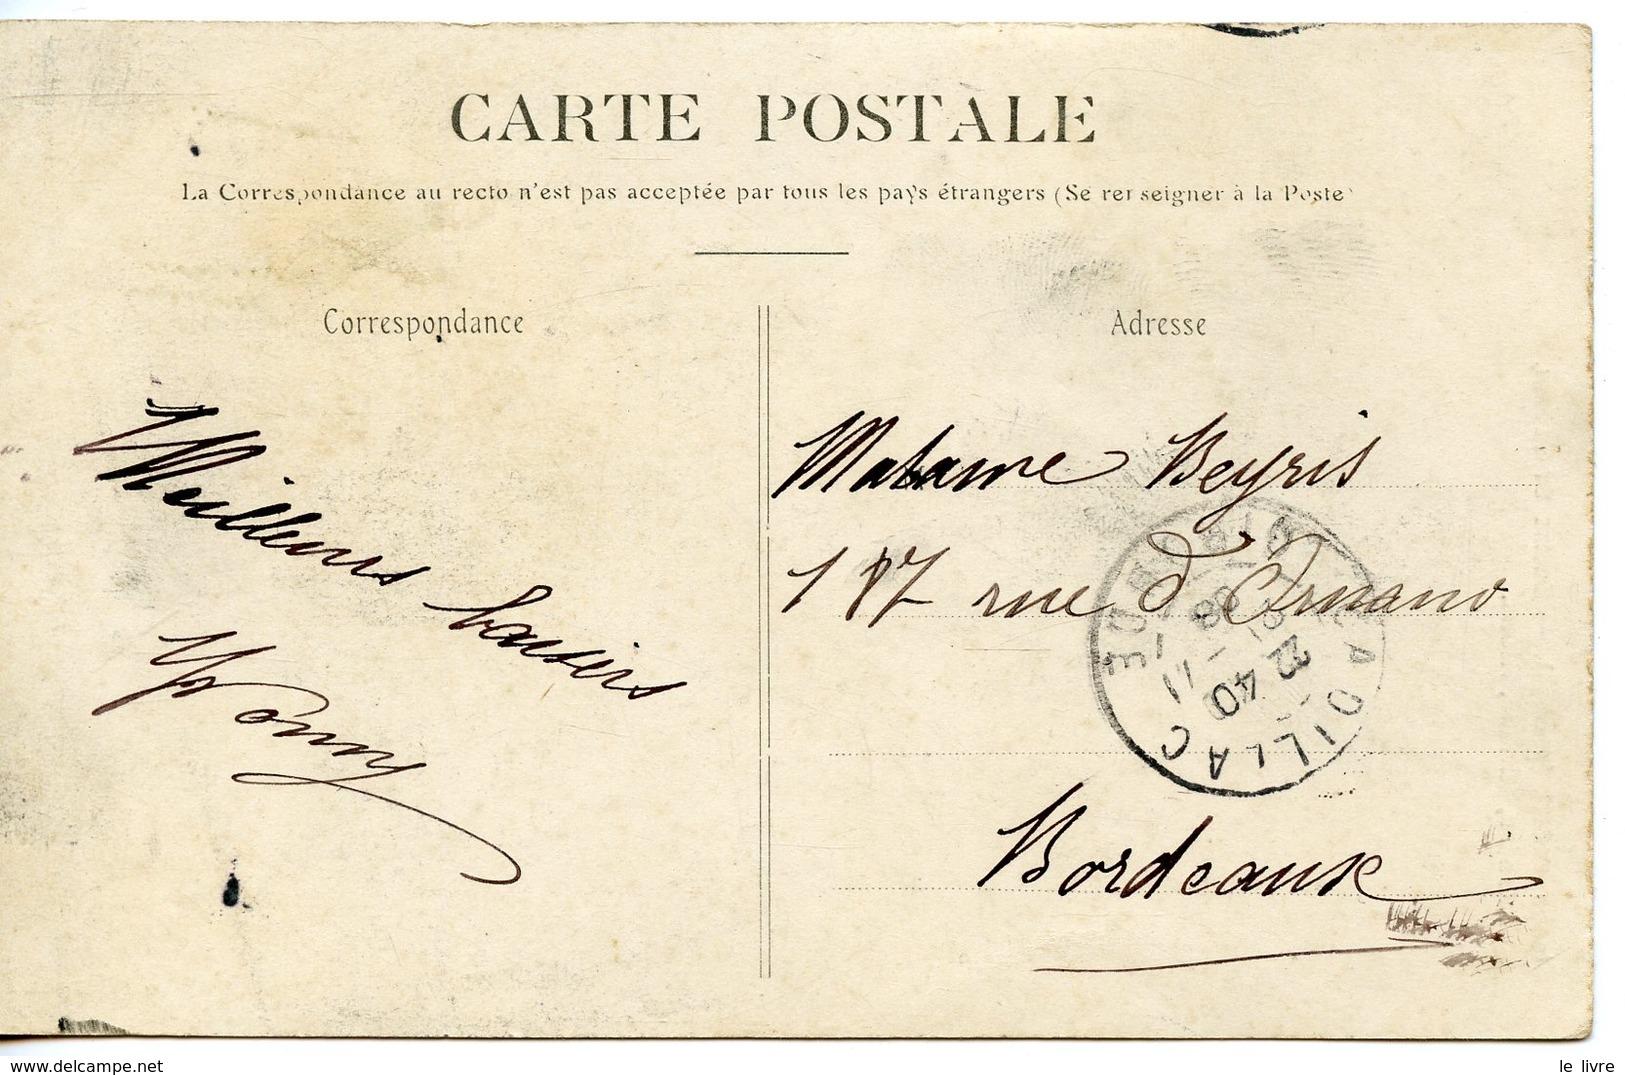 CARTE POSTALE
La Correspondance au recto n'est pas acceptée par tous les pays étrangers (Se renseigner à la Poste)
Correspondance
Meilleurs baisers
Yvonny
Adresse
Madame Beyris
187 rue d'Ornano
Bordeaux
CADILLAC
22 40
le livre
www.delcampe.net